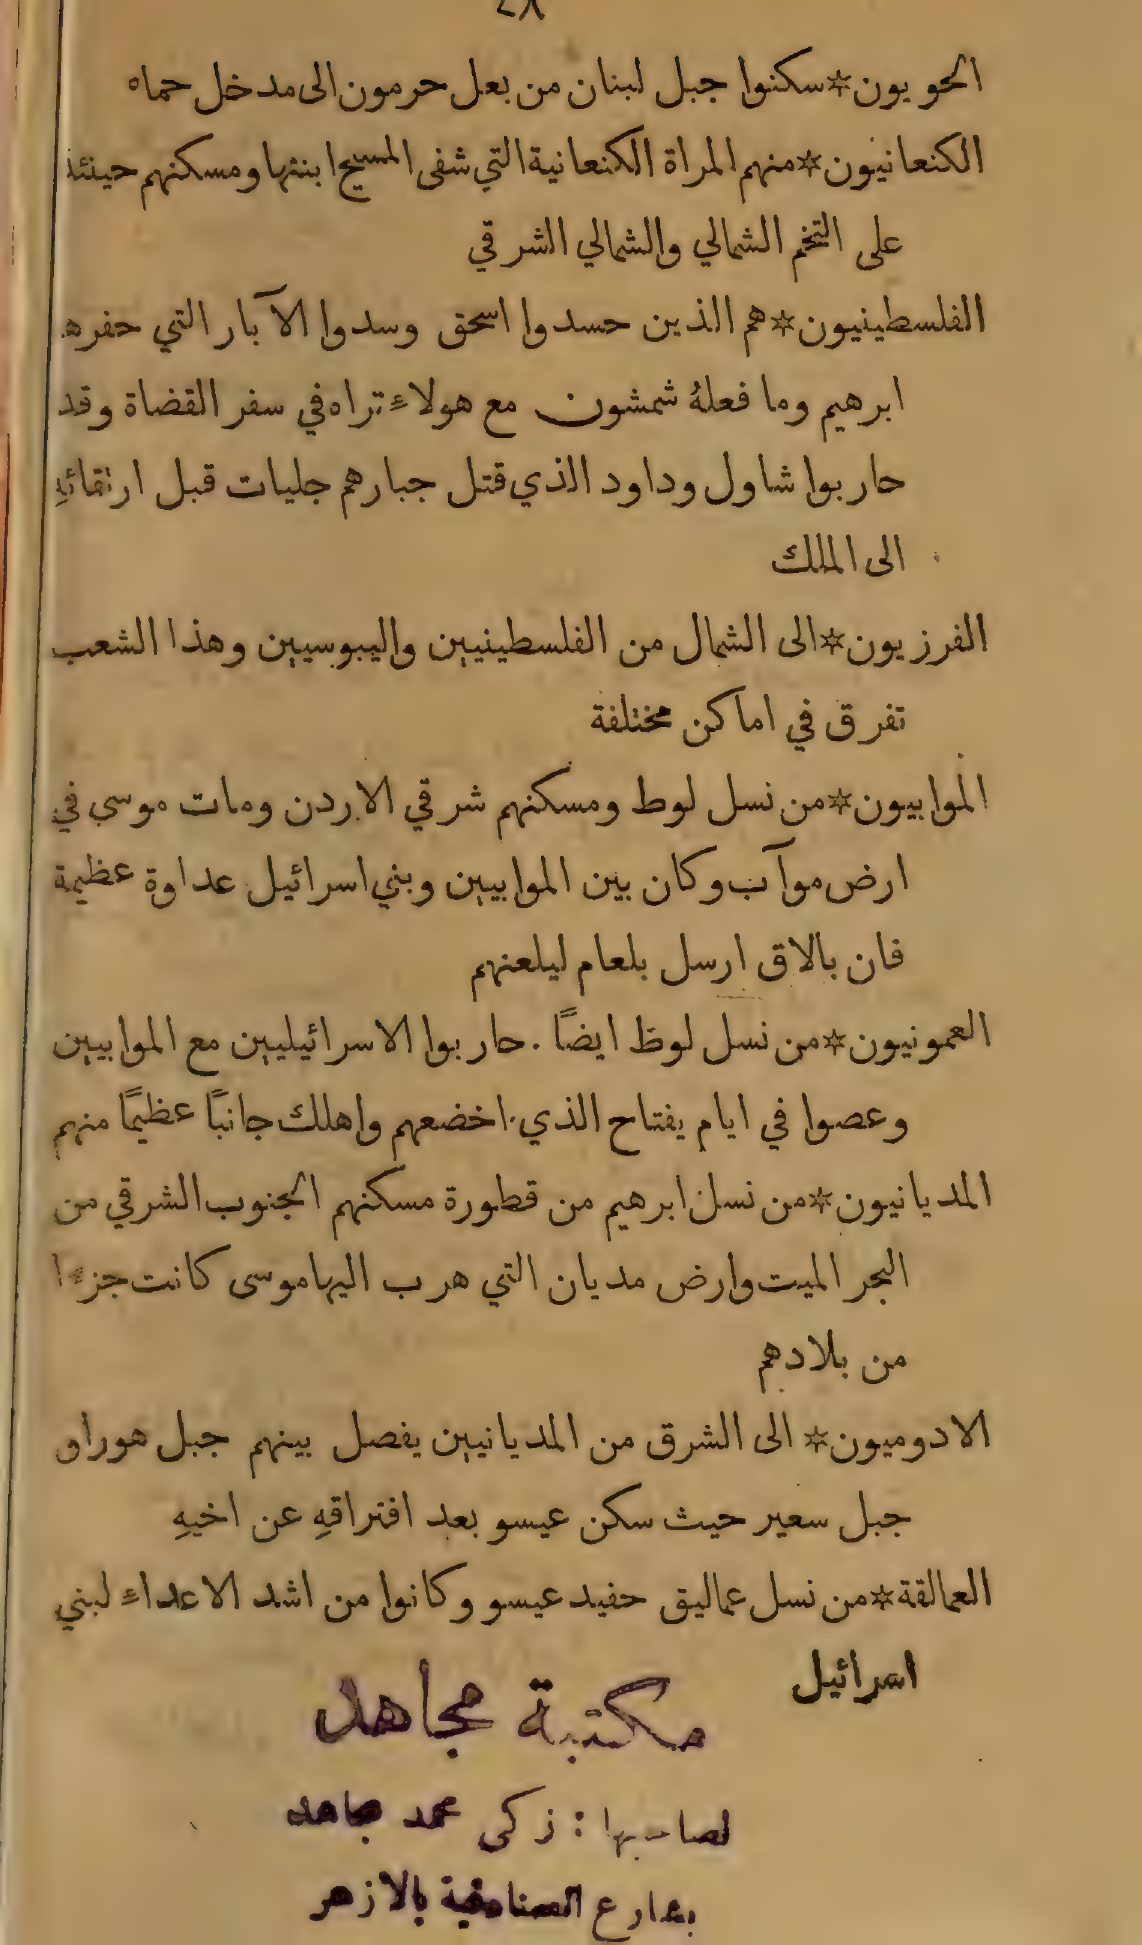 ٤٨
الحويون*سكنوا جبل لبنان من بعل حرمون الى مدخل حماه
الكنعانيون*منهم المراة الكنعانية التي شفى المسيح ابنتها ومسكنهم حينئذ
على التخم الشمالي والشمالي الشرقي
الفلسطينيون*هم الذين حسدوا اسحق وسدوا الآبار التي حفرها
ابرهيم وما فعلهُ شمشون مع هولاء تراه في سفر القضاة وقد
حاربوا شاول وداود الذي قتل جبارهم جليات قبل ارتقائهِ
الى الملك
الفرزيون*الى الشمال من الفلسطينيين واليبوسيين وهذا الشعب
تفرق في اماكن مختلفة
الموابيون*من نسل لوط ومسكنهم شرقي الاردن ومات موسى في
ارض موآب وكان بين الموابيين وبني اسرائيل عداوة عظيمة
فان بالاق ارسل بلعام ليلعنهم
العمونيون*من نسل لوط ايضًا. حاربوا الاسرائيليين مع الموابيين
وعصوا في ايام يفتاح الذي اخضعهم واهلك جانبًا عظيمًا منهم
المديانيون*من نسل ابرهيم من قطورة مسكنهم الجنوب الشرقي من
البحر الميت وارض مديان التي هرب اليها موسى كانت جزءا
من بلادهم
الادوميون* الى الشرق من المديانيين يفصل بينهم جبل هور او
جبل سعير حيث سكن عيسو بعد افتراقهِ عن اخيهِ
العمالقة*من نسل عماليق حفيد عيسو وكانوا من اشد الاعداء لبني
اسرائيل
مكتبة مجاهد
لصاحبها : زكى محمد مجاهد
بشارع الصنادقية بالازهر